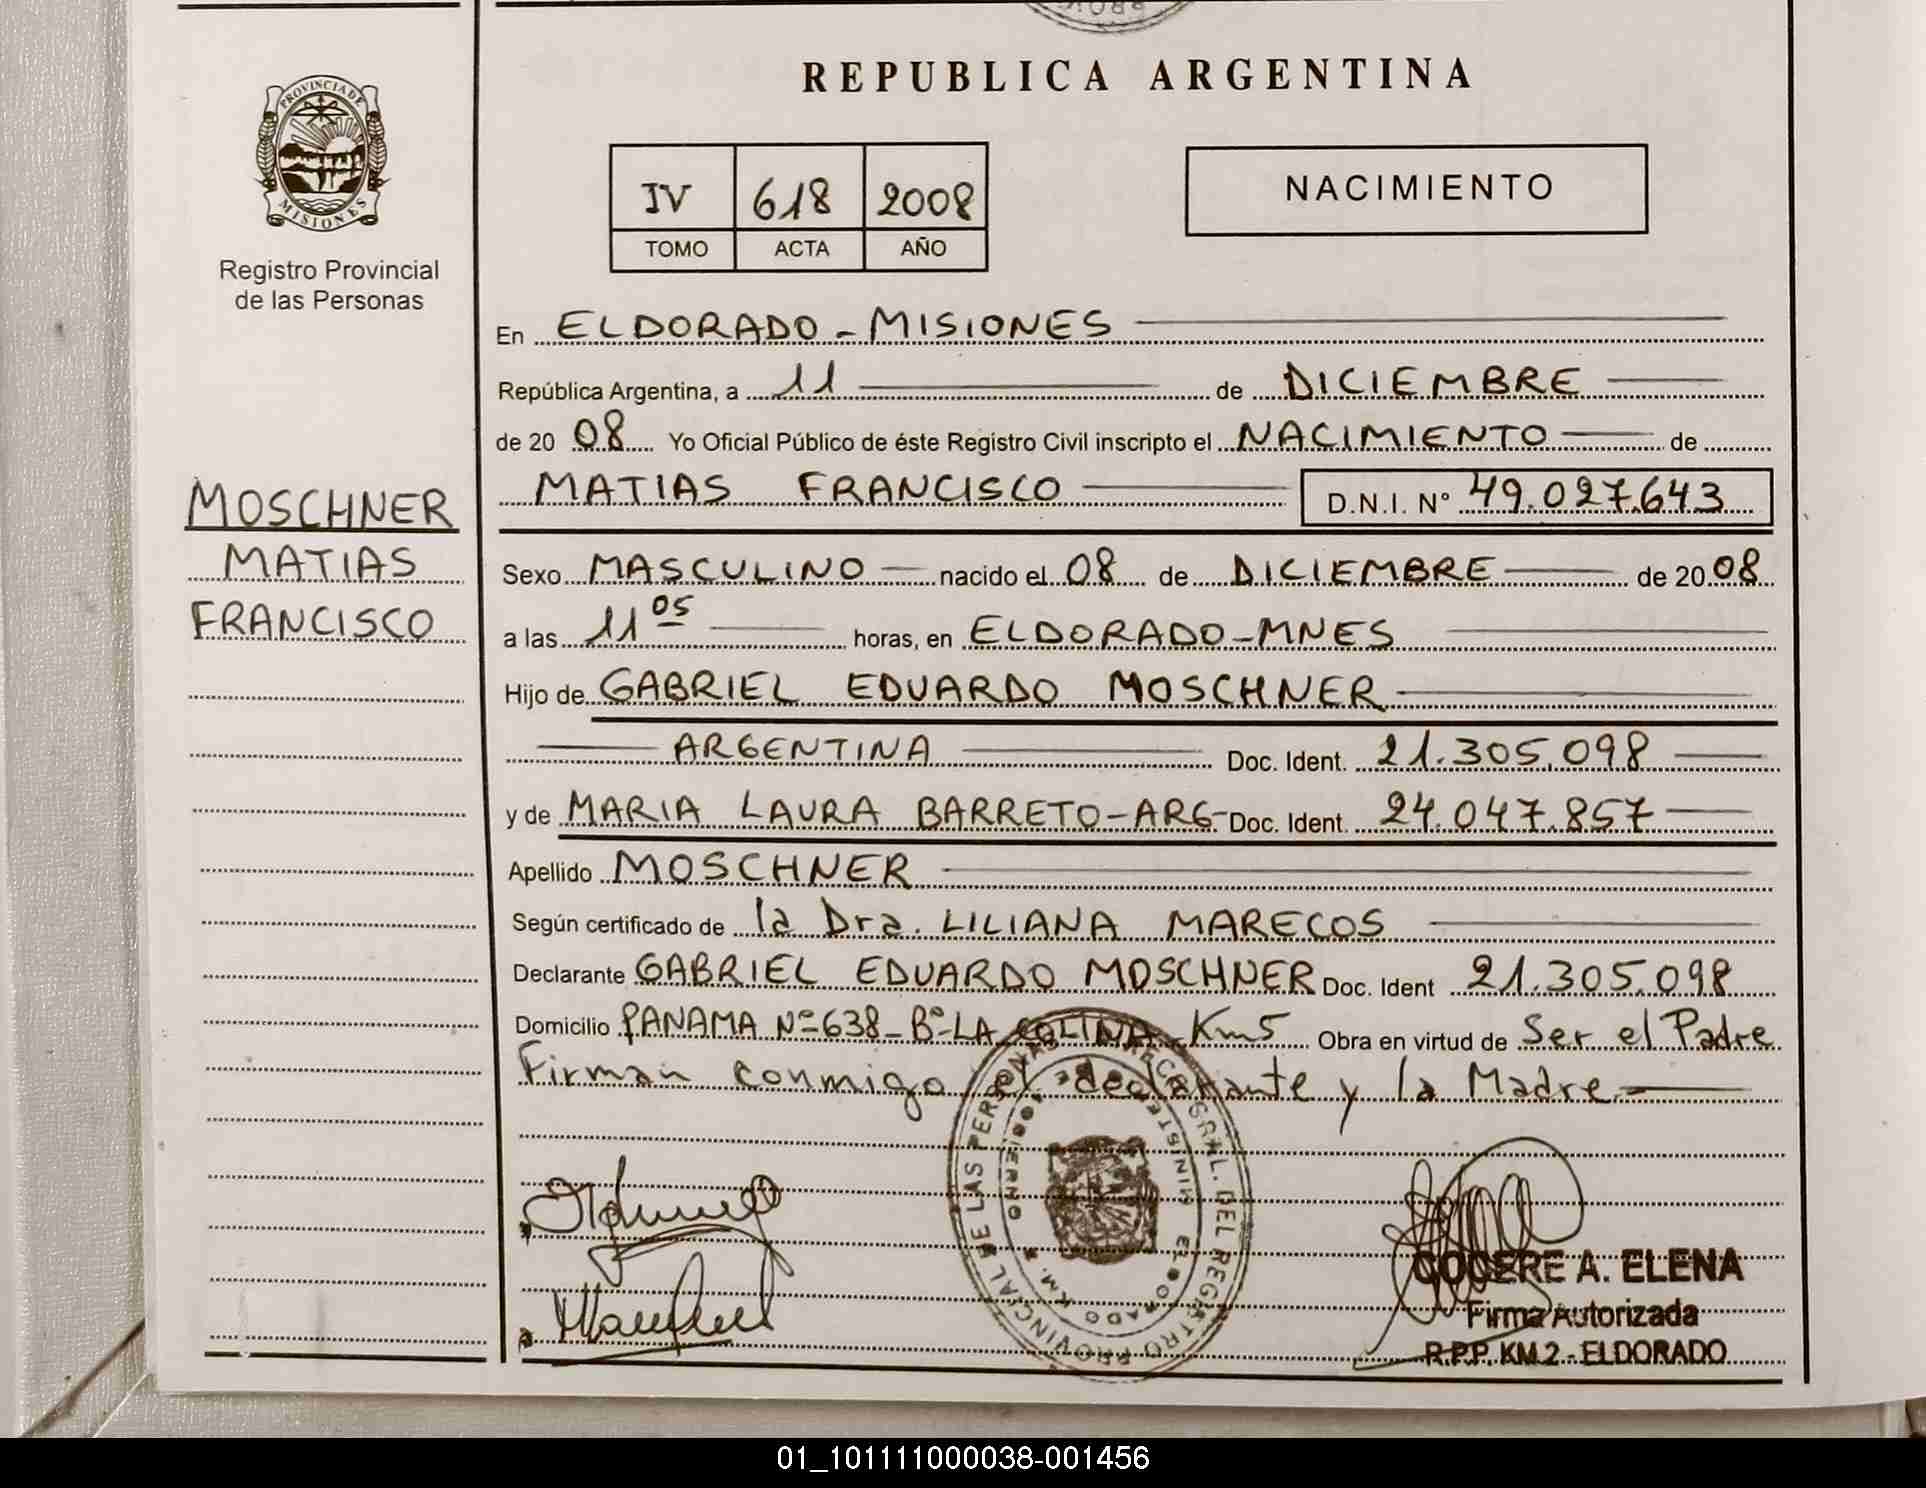 PROV
REPUBLICA ARGENTINA
PROVINCIA DE
MISIONES
Registro Provincial
de las Personas
IV 618 2008
TOMO ACTA AÑO
NACIMIENTO
En ELDORADO - MISIONES
República Argentina, a 11 de DICIEMBRE
de 20 08 Yo Oficial Público de éste Registro Civil inscripto el NACIMIENTO de
MATIAS FRANCISCO D.N.I. N° 49.027.643
MOSCHNER
MATIAS
FRANCISCO
Sexo MASCULINO nacido el 08 de DICIEMBRE de 20 08
a las 11 05 horas, en ELDORADO-MNES
Hijo de GABRIEL EDUARDO MOSCHNER
ARGENTINA Doc. Ident. 21.305.098
y de MARIA LAURA BARRETO-ARG- Doc. Ident. 24.047.857
Apellido MOSCHNER
Según certificado de la Dra. LILIANA MARECOS
Declarante GABRIEL EDUARDO MOSCHNER Doc. Ident 21.305.098
Domicilio PANAMA Nº 638 - Bº LA COLINA Km5 Obra en virtud de Ser el Padre
Firman conmigo el declarante y la Madre.-
DEL REGISTRO PROVINCIAL DE LAS PERSONAS
MINISTE DE GOBIERNO
ELDORADO KM.
COCERE A. ELENA
Firma Autorizada
R.P.P. KM.2 - ELDORADO
01_101111000038-001456